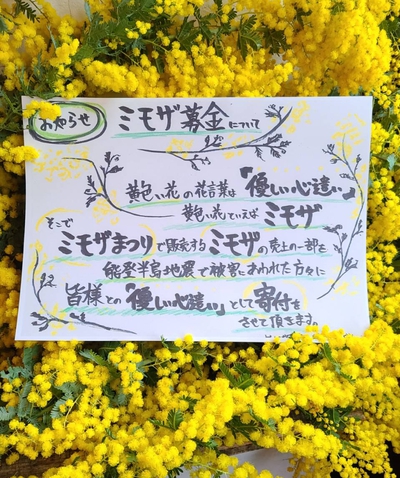 お知らせ
ミモザ募金について
黄色い花の花言葉は「優しい心遣い」
黄色い花といえばミモザ
そこで
ミモザまつりで販売するミモザの売上の一部を
能登半島地震で被害にあわれた方々に
皆様との「優しい心遣い」として寄付を
させて頂きます。